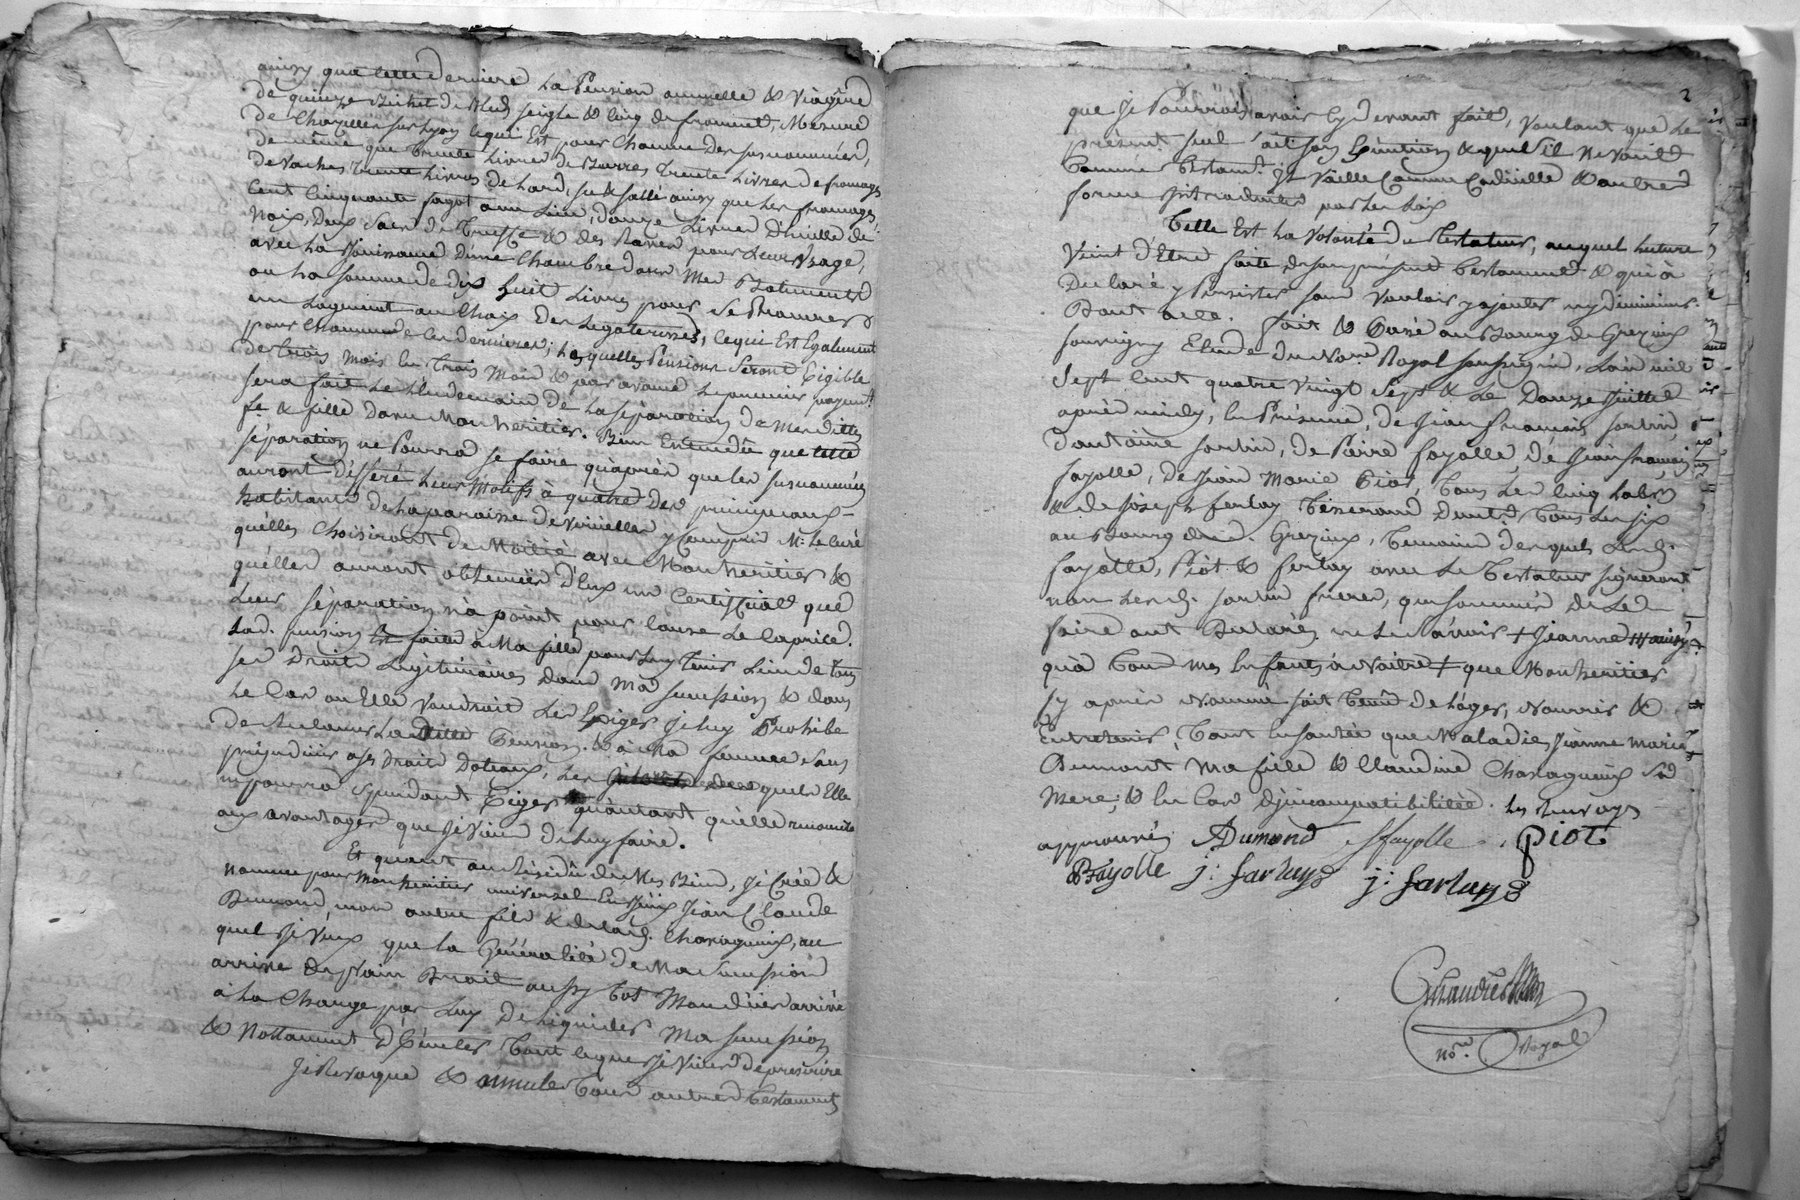 ainsy qua cette derniere La Pension annuelle & Viagere
de quinze Bichet de Bled seigle & Cinq de froment, Mesure
de Chazelles sur Lyon Ce qui Est pour Chacune Des susnommées,
de même que trente Livres de Burres trente Livres De fromages
de Vaches trente Livres de Lard, sec & sallé ainsy que Les fromages,
Cent Cinquante fagot a une Lieue, douze Livres D'huille de
Noix, Deux Sacs de Truffe & des Raves pour Leur Usage,
avec La Jouissance D'une Chambre dans Mes Batiments
ou La somme de dix huit Livres pour Se Procurer
un Logement au Choix Des Legateresses, Ce qui Est Egalement
pour Chacune de Ces dernieres; Lesquelles Pensions Seront Exigible
de trois mois En trois Mois & par avance Le premier payemt.
sera fait Le Lendemain de La séparation De Mesdittes
fe. & fille D'avec Mon heritier. Bien Entendu que cette
séparation ne Pourra se faire qu'après que Les susnommées
auront déferé Leurs Motifs à quatre Des principaux
habitants de La paroisse de Viricelles y Compris Mr. Le Curé
qu'elles Choisiront de Moitié avec Mon heritier &
qu'elles auront obtenues D'Eux un Certificat que
Leur séparation n'a point pour Cause Le Caprice.
Lad. pension Est faite à Ma fille pour Luy tenir Lieu de tous
ses Droits Légitimaires dans Ma succession & dans
Le Cas ou Elle Vaudroit Les Exiger Je Luy Prohibe
de reclamer Laditte Pension. & à Ma femme sans
préjudicier a ses Droits Dotaux, Les quels Elle
ne pourra Cependant Exiger qu'autant qu'elle renoncera
aux avantages que Je Viens de Luy faire.
Et quant au Résidû de Mes Biens, Je Crée &
nomme pour Mon heritier universel En Iceux Jean Claude
Dumond, mon autre fils & de Lad. Chavagneux, au
quel Je Veux que La Généralité de Ma Succession
arrive de Plain Droit aussy tot Mon decès arrivé
à La Charge par Luy De Liquider Ma succession
& Nottament d'Executer tout Ce que Je Viens de prescrire
Je Revoque & annulle tous autres Testaments
2
que Je Pourrois avoir Cy devant fait, Voulant que Le
présent seul ait son Execution & que s'il ne Vault
Comme Testamt. Il Vaille Comme Codicille & autres
forme introduite par Les Loix
Telle Est La Volonté du Testateur, auquel Lecture
Vient d'Etre faite de son présent Testament & qui à
Declaré y Persister sans Vouloir y ajouter ny diminuer.
Dont acte. fait & Passé au Bourg de Grezieux
souvigny Etude du Nore. Royal soussigné, L'an mil
Sept Cent quatre Vingt Sept & Le Douze Juillet
après midy, En Présence, de Jean François
de Pierre fayolle, de Jean françois
fayolle, de Jean Marie Piot, tous Les Cinq Labrs.
& de Joseph ferlay Tisserand Demts. tous Les six
au Bourg dud. Grezieux, temoins desquels Lesd.
fayolle, Piot. & ferlay avec Le Testateur signeront
non Lesd. freres, qui sommés De Le
faire ont Declarés ne Le sçavoir + Jeanne
qu'à tous mes Enfants à Naitre + que Mon heritier
Cy après Nommé soit tenû de Loger, Nourrir &
Entretenir, tant En santée que Maladies, Jeanne Marie
Dumont Ma fille & Claudine Chavagneux Sa
Mere; & En Cas d'jncompatibilitée. Les Renvoys
approuvés Dumond Jfayolle piot
Pfayolle j: farlay j: farlay
nore. Royal